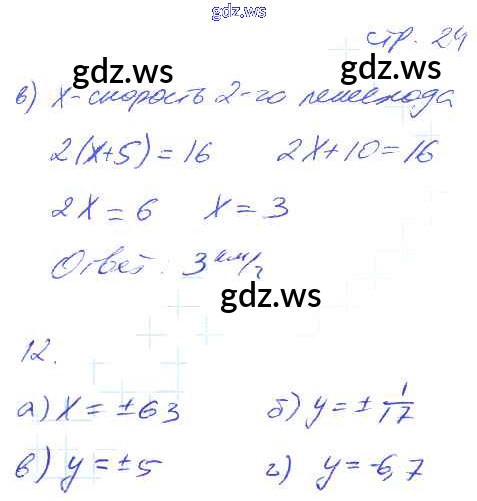 gdz.ws
стр. 24
gdz.ws
в) x - скорость 2-го пешехода
2(x+5) = 16 2x+10=16
2x = 6 x = 3
Ответ: 3 км/ч
gdz.ws
12.
а) x = ±63 б) y = ± 1/17
в) y = ±5 г) y = -6,7
gdz.ws